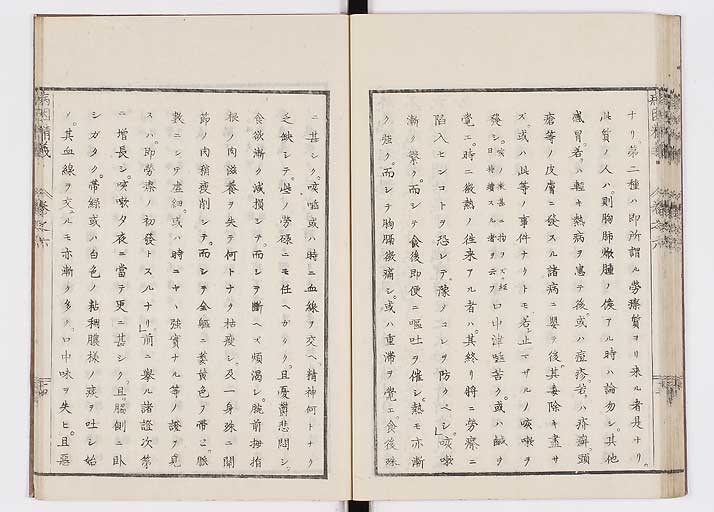 ナリ第二種ハ即所謂ル勞瘵質ヨリ来ル者是ナリ。
此質ノ人ハ。則胸肺癥腫ノ候アル時ハ論勿シ。其他
感冒。若ハ輕キ熱病ヲ患テ後。或ハ痘疹。若ハ疥癬。頭
瘡等ノ皮膚ニ發スル諸病ニ嬰テ後。其毒除キ盡サ
ズ。或ハ此等ノ事件ナクトモ。若止マザルノ咳嗽ヲ
發シ。口中津唾苦ク。或ハ鹹ヲ
覺エ。時ニ微熱ノ往来アル者ハ。其終リ將ニ勞瘵ニ
陷入センコトヲ恐レテ。豫メコレヲ防クベシ。」咳嗽
漸ク繁ク。而シテ食後即便ニ嘔吐ヲ催シ。熱モ亦漸
ク強ク。而シテ胸膈微痛シ。或ハ重滞ヲ覺エ。食後殊
ニ甚シク。咳唾或ハ時ニ血線ヲ交ヘ。精神何トナク
乏缺シテ。些ノ勞碌ニモ任ヘガタク。且憂欝悲悶シ。
食欲漸ク減損シテ。而シテ斷ヘズ煩渇シ。腕前拇指
根ノ肉滋養ヲ失テ何トナク枯痩シ。及一身殊ニ關
節ノ肉稍瘦削シテ。而シテ全軀ニ萎黄色ヲ帯ヒ。脈
數ニシテ虚細。或ハ時ニヤヽ強實ナル等ノ證ヲ見
スハ。即勞瘵ノ初發トスルナリ。」前ニ擧ル諸證次第
ニ増長シ。咳嗽夕夜ニ當テ更ニ甚シク。且。脇側ニ臥
シガタク。帯緑或ハ白色ノ粘稠膿様ノ痰ヲ吐シ。始
ノ。其血線ヲ交ルモ亦漸ク多ク。口中味ヲ失ヒ。且惡
病因精義
卷之六
十四